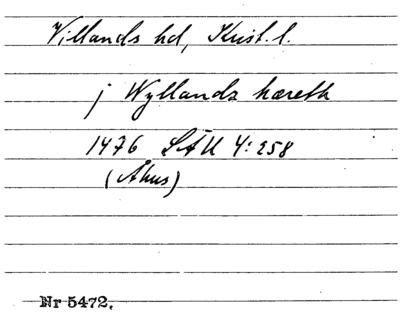 Villands hd, Krist. l.
j Wyllands hæreth
1476 SÄU 4:258
(Åhus)
Nr 5472.